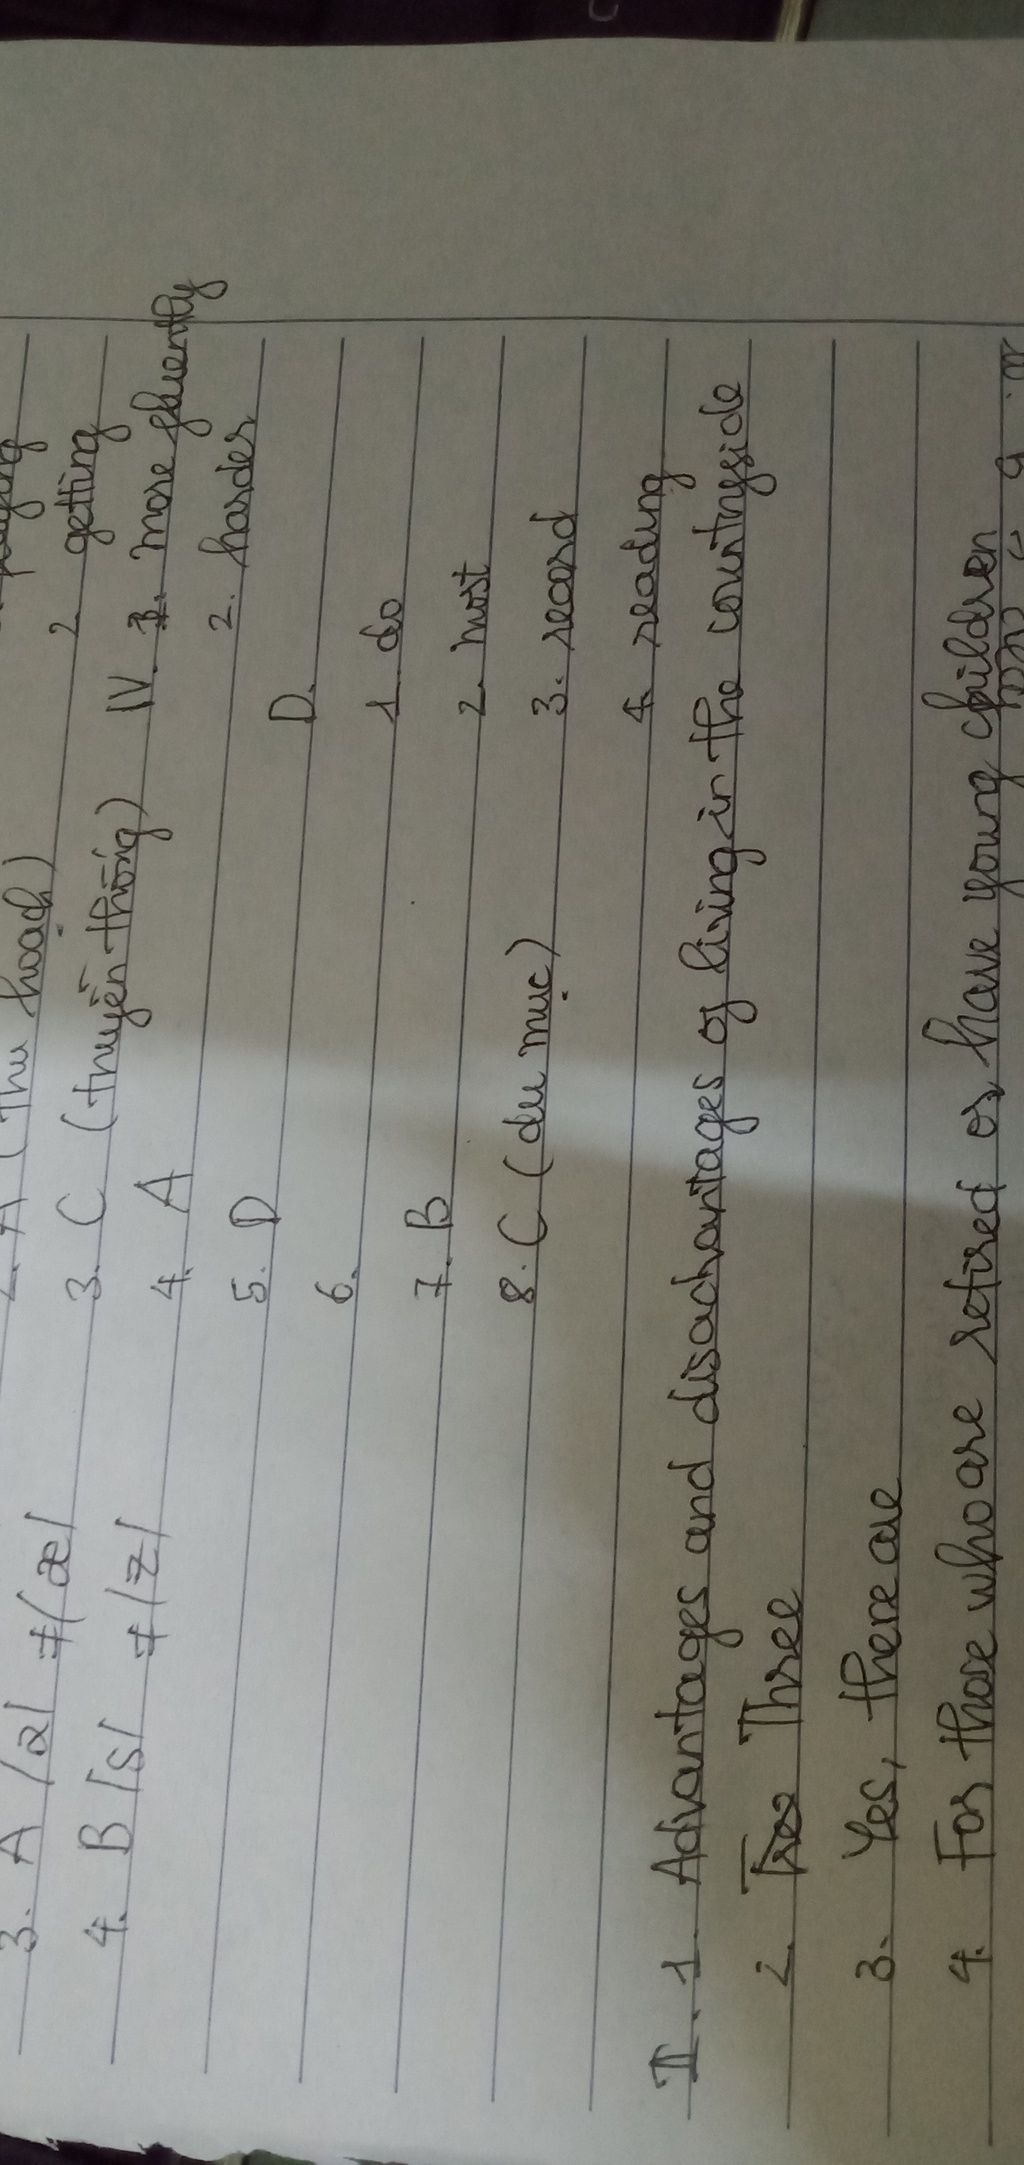 playing
A (Thu hoạch)
2 getting
3. A /ə/ ≠ /æ/
3. C (truyền thống)
IV. 1. more fluently
4. B /s/ ≠ /z/
4. A
2. harder
5. D
D.
6.
1. do
7. B
2. most
8. C (du mục)
3. record
4. reading
II. 1. Advantages and disadvantages of living in the countryside
2. Three
3. Yes, there are
4. For those who are retired or have young children